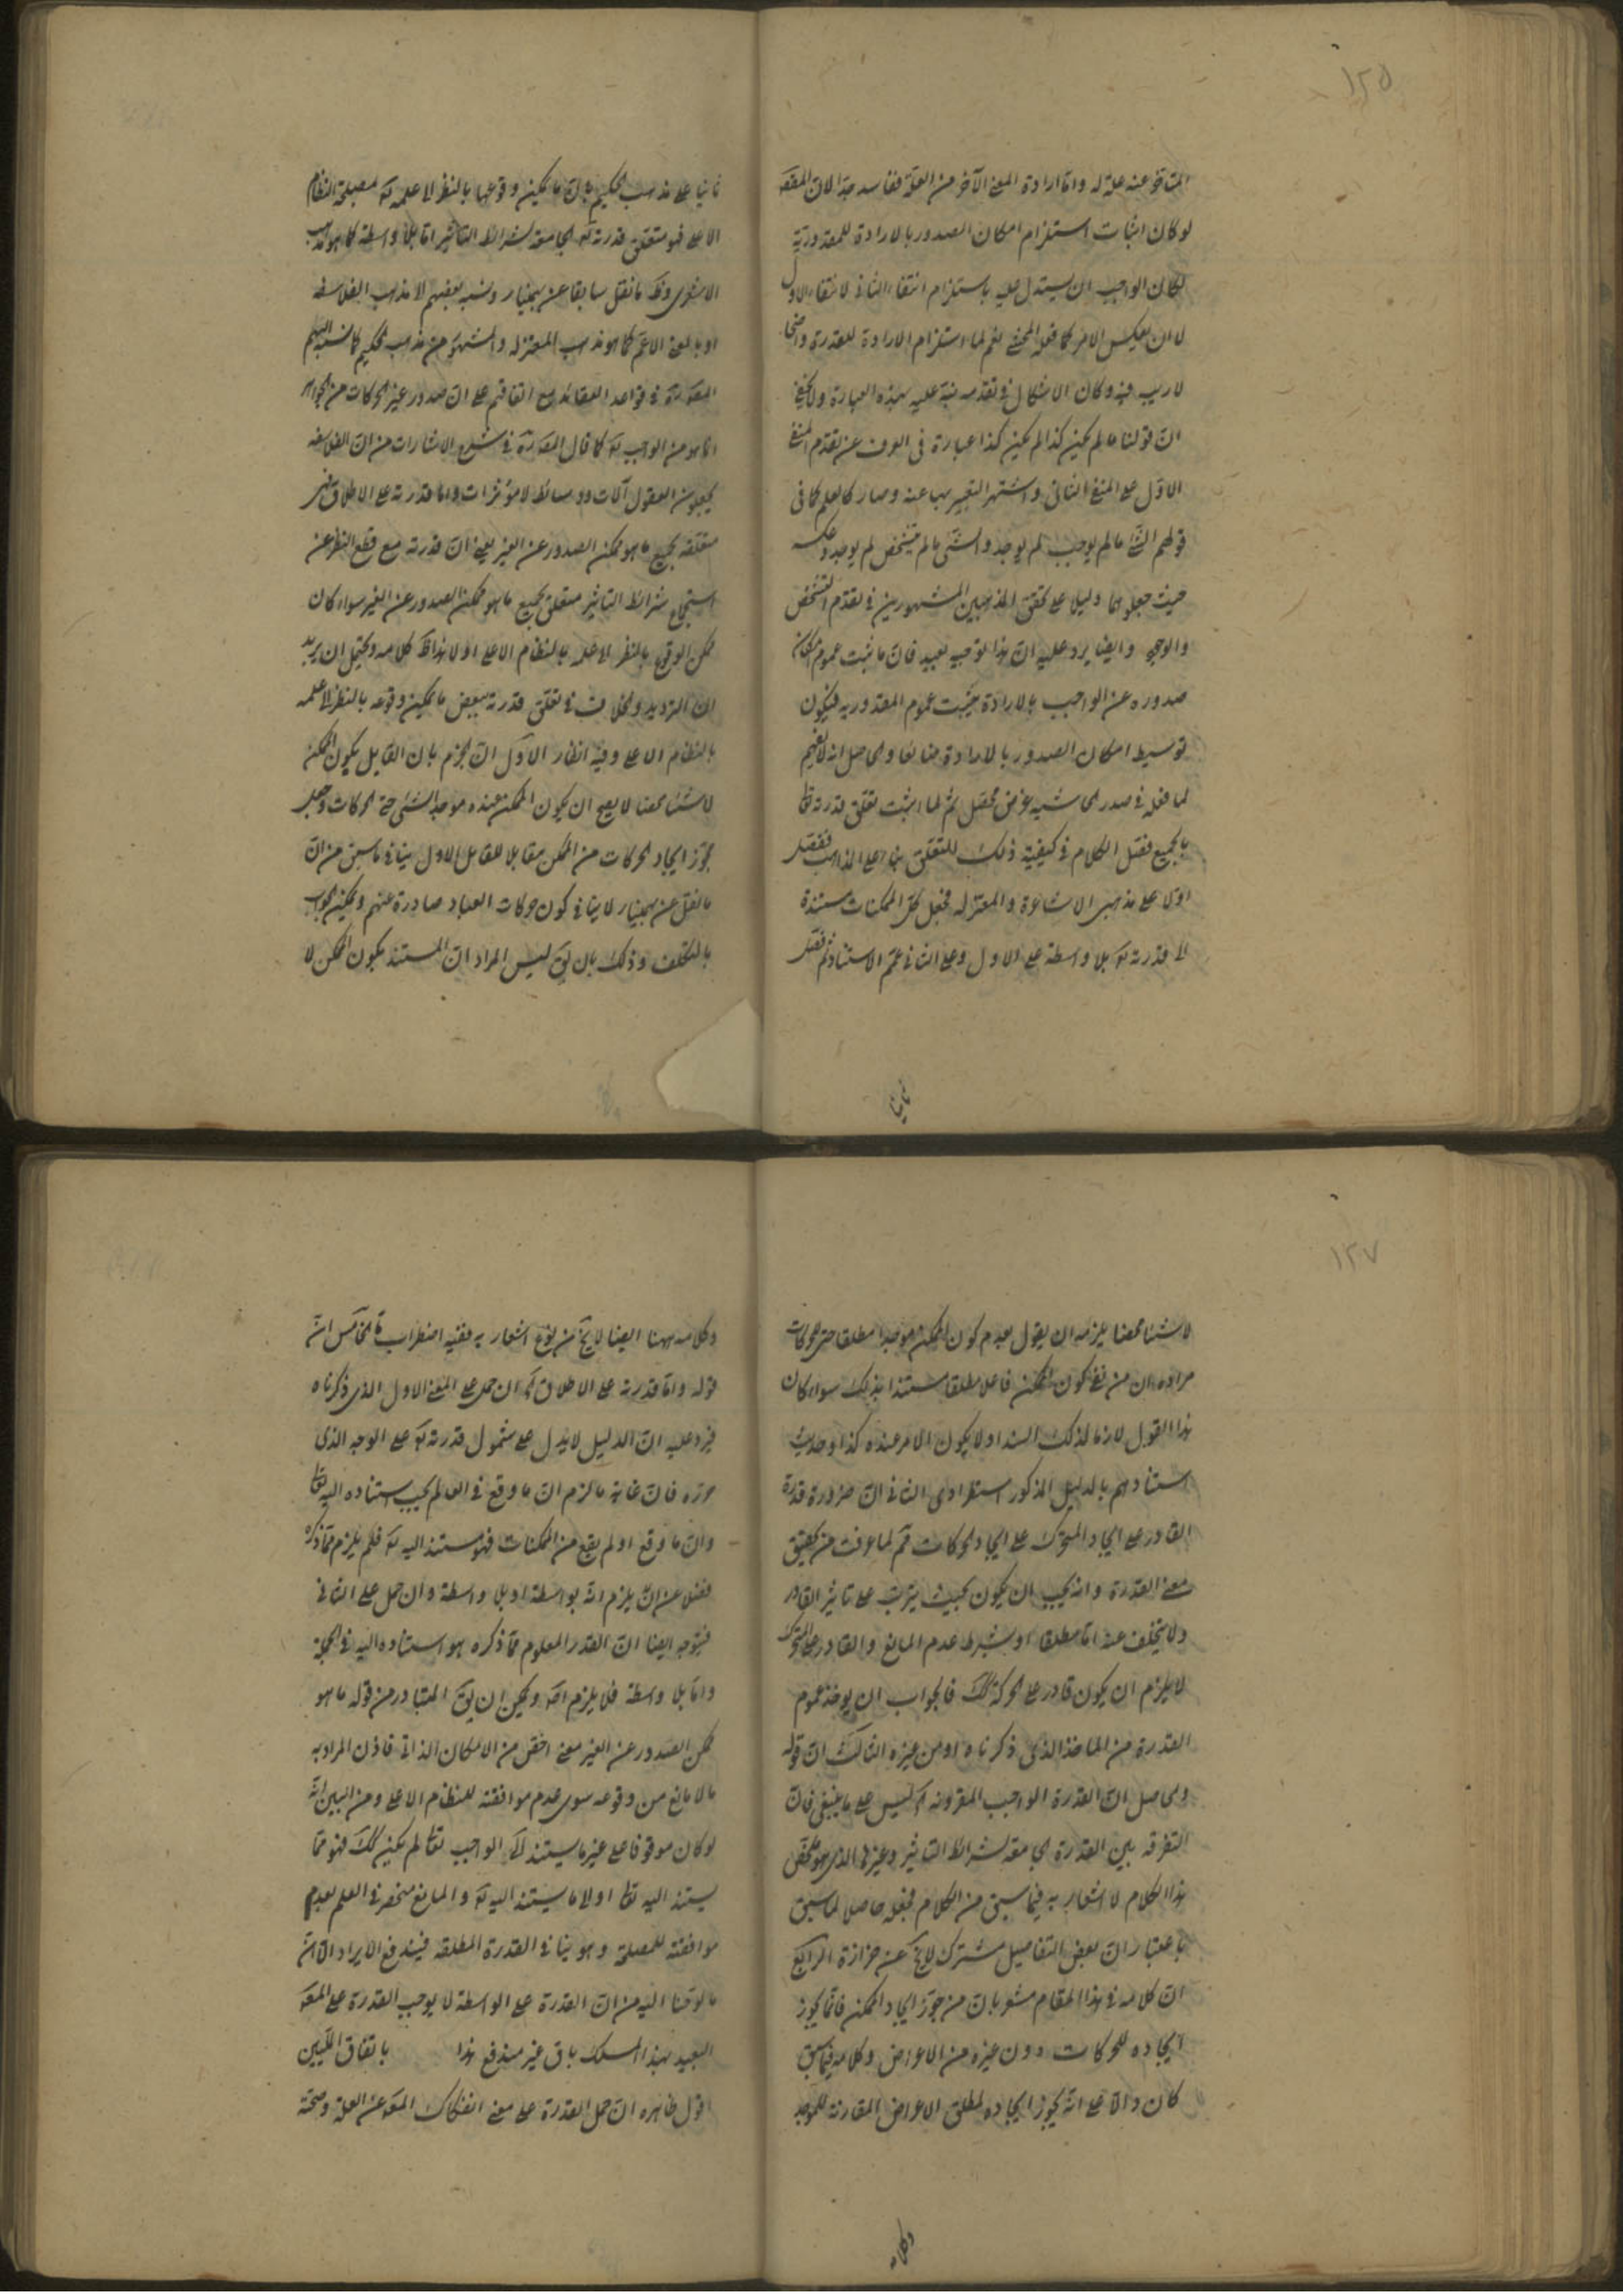 ١٢٥
المتأخر عنه علة له واما ارادة المعنى الآخر من العلة ففاسد جدا لان المقصـ
لو كان اثبات استلزام امكان الصدور بالارادة للمقدورية
لكان الواجب ان يستدل عليه باستلزام انتفاء الثانى لانتفاء الاول
لا ان يعكس الامر كما فعله المحشى نعم لما استلزام الارادة للقدرة واضحا
لا ريب فيه وكان الاشكال فى تقدمه نبه عليه بهذه العبارة ولا يخفى
ان قولنا ما لم يكن كذا لم يكن كذا عبارة فى العرف عن تقدم المعنى
الاول على المعنى الثانى واشتهر التعبير بها عنه وصار كالعلم كما فى
قولهم الشئ ما لم يوجب لم يوجد والشئ ما لم يتشخص لم يوجد وعكسه
حيث جعلوها دليلا على تحقق المذهبين المشهورين فى تقدم التشخص
والوجود وايضا يرد عليه ان هذا التوجيه بعيد فان ما يثبت عموم امكان
صدوره عن الواجب بالارادة يثبت عموم المقدورية فيكون
توسيط امكان الصدور بالارادة ضائعا والحاصل انه لا يفهم
لما فعله فى صدر الحاشيه غرض محصل ثم لما اثبت تعلق قدرته تعا
بالجميع فصل الكلام فى كيفية ذلك التعلق بناء على المذاهب ففصل
اولا على مذهبى الاشاعرة والمعتزله فجعل كل الممكنات مستندة
الى قدرته تع بلا واسطة على الاول وعلى الثانى عمم الاستناد ثم فصل
ثانيا
ثانيا على مذهب الحكيم بان ما يمكن وقوعها بالنظر الى علمه تع بمصلحة النظام
الاعلى فهو متعلق قدرته تع الجامعة لشرائط التاثير اما بلا واسطة كما هو مذهب
الاشعرى وظ ما نقل سابقا عن بهمنيار ونسبه بعضهم الى مذهب الفلاسفه
او بالمعنى الاعم كما هو مذهب المعتزله والمشهور من مذهب الحكيم كما نسبه اليهم
المصـ ره فى قواعد العقائد مع اتفاقهم على ان صدور غير الحركات من الجواهر
انما هو من الواجب تع كما قال المصـ ره فى شرح الاشارات من ان الفلاسفه
يجعلون العقول آلات ووسائط لا مؤثرات واما قدرته على الاطلاق فهى
متعلقه بجميع ما هو ممكن الصدور عن الغير يعنى ان قدرته مع قطع النظر عن
استجماع شرائط التاثير متعلق بجميع ما هو ممكن الصدور عن الغير سواء كان
ممكن الوقوع بالنظر الى علمه بالنظام الاعلى او لا هذا ظ كلامه ويحتمل ان يريد
ان الترديد والخلاف فى تعلق قدرته ببعض ما يمكن وقوعه بالنظر الى علمه
بالنظام الاعلى وفيه انظار الاول ان الجزم بان القايل بكون الممكن
لا شيئا محضا لا يصح ان يكون الممكن عنده موجدا لشئ حتى الحركات وجعل
مجوز ايجاد الحركات من الممكن مقابلا للقايل الاول ينافى ما سبق من ان
ما نقل عن بهمنيار لا ينافى كون حركات العباد صادرة عنهم ويمكن الجواب
بالتكلف وذلك بان يق ليس المراد ان المستند بكون الممكن لا
١٢٧
لا شيئا محضا يلزمه ان يقول بعدم كون الممكن موجدا مطلقا حتى الحركات
مراده ان من نفى كون الممكن فاعلا مطلقا مستندا بذلك سواء كان
هذا القول لازما لذلك السند او لا يكون الامر عنده كذا وحديث
استنادهم بالدليل المذكور استطرادى الثانى ان ضرورة قدرة
القادر على ايجاد المتحرك على ايجاد الحركات ثم لما عرفت من تحقيق
معنى القدرة وانه يجب ان يكون بحيث يترتب على تاثير القادر
ولا يتخلف عنه اما مطلقا او بشرط عدم المانع والقادر على المتحرك
لا يلزم ان يكون قادرا على الحركة كك فالجواب ان يوخذ عموم
القدرة من الماخذ الذى ذكرناه او من غيره الثالث ان قوله
وحاصل ان القدرة الواجب المقرونه آه ليس على ما ينبغى فان
التفرقه بين القدرة الجامعة لشرائط التاثير وغيرها الذى هو ملخص
هذا الكلام لا اشعار به فيما سبق من الكلام فجعله حاصلا لما سبق
باعتبار ان بعض التفاصيل مشترك لا يخ عن حزازة الرابع
ان كلامه فى هذا المقام مشعر بان من جوز ايجاد الممكن فانما يجوز
ايجاده للحركات دون غيره من الاعراض وكلامه فيما سبق
كان دالا على انه يجوز ايجاده لمطلق الاعراض المقارنه للموجد
وكلامه
وكلامه ههنا ايضا لا يخ من نوع اشعار به ففيه اضطراب ما الخامس ان
قوله واما قدرته على الاطلاق آه ان حمل على المعنى الاول الذى ذكرناه
فيرد عليه ان الدليل لا يدل على شمول قدرته تع على الوجه الذى
حرره فان غاية ما لزم ان ما وقع فى العالم يجب استناده اليه تعا
وان ما وقع او لم يقع من الممكنات فهو مستند اليه تع فلم يلزم مما ذكره
فضلا عن ان يلزم انه بواسطة او بلا واسطة وان حمل على الثانى
فيتوجه ايضا ان القدر المعلوم مما ذكره هو استناده اليه فى الجملة
واما بلا واسطة فلا يلزم اصلا ويمكن ان يق المتبادر من قوله ما هو
ممكن الصدور عن الغير معنى اخص من الامكان الذاتى فاذن المراد به
ما لا مانع من وقوعه سوى عدم موافقته للنظام الاعلى ومن البين انه
لو كان موقوفا على غير ما يستند الى الواجب تعا لم يكن كك فهو مما
يستند اليه تعا او الى ما يستند اليه تع والمانع منحصر فى العلم بعدم
موافقته للمصلحة وهو ينافى القدرة المطلقه فيندفع الايراد الا ان
ما لوحنا اليه من ان القدرة على الواسطة لا يوجب القدرة على المعلـ
البعيد بهذا المسلك باق غير مندفع هذا باتفاق المليين
اقول ظاهره ان حمل القدرة على معنى انفكاك المعـ عن العلة وصحة